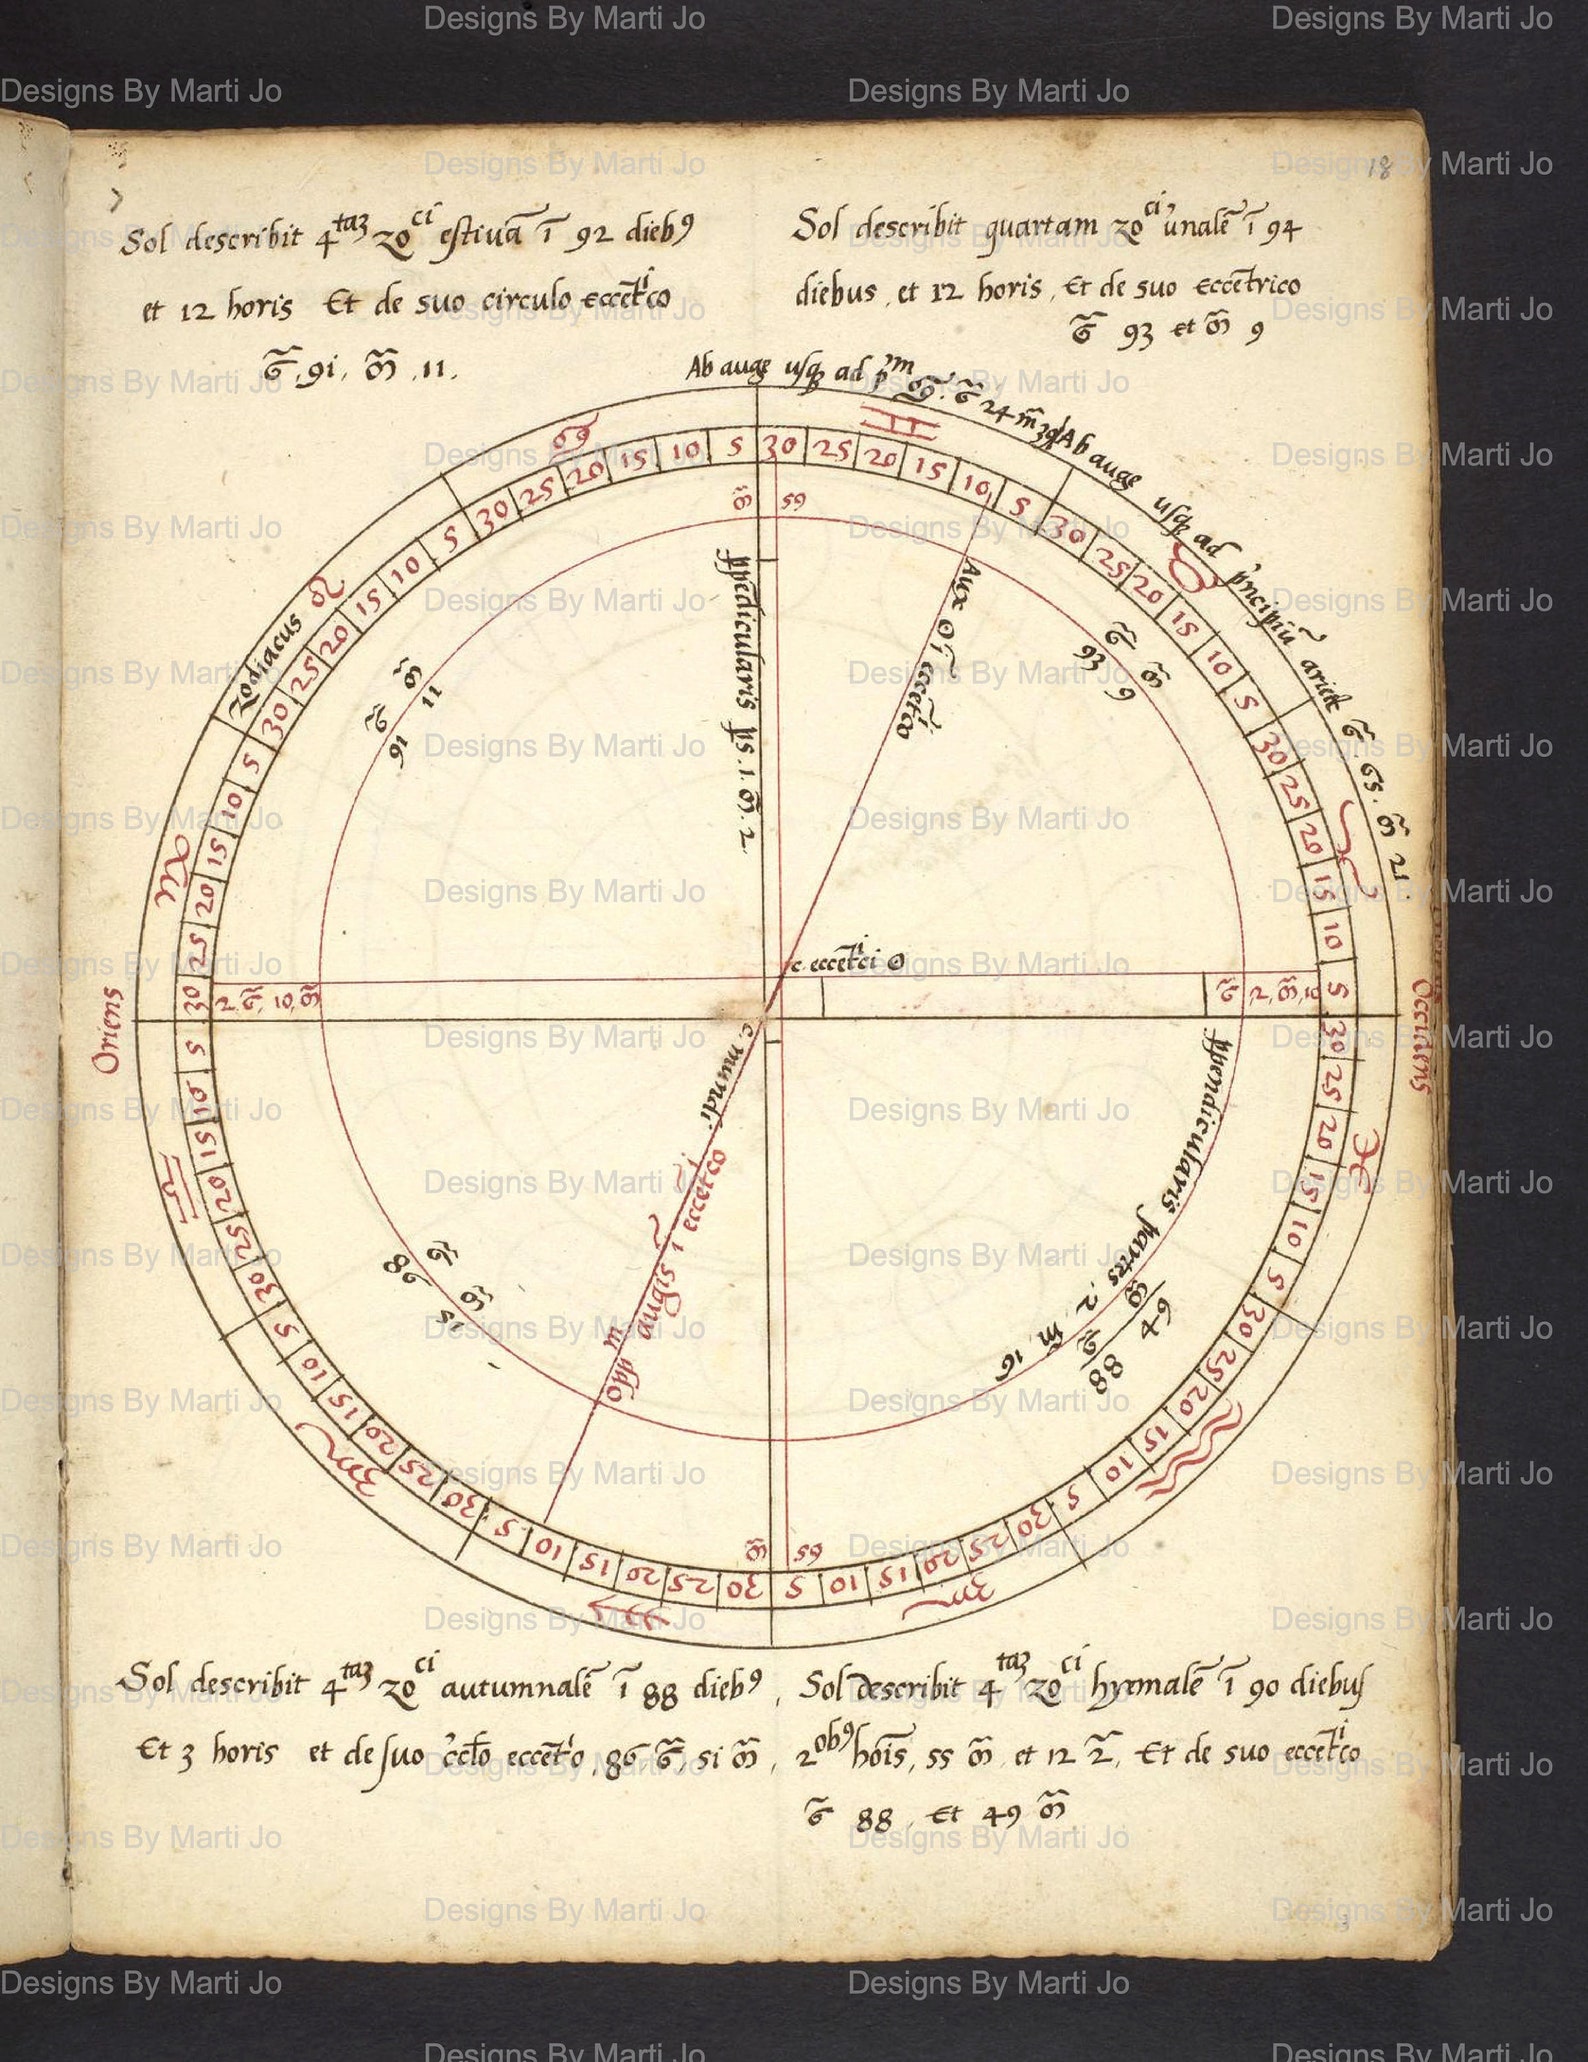 18
Sol describit 4^taȝ zo^ci estiuā ī 92 dieb9
et 12 horis Et de suo circulo eccēt^ico
G̃ .91. m̃ .11.
Sol describit quartam zo^ci u̓nalē ī 94
diebus, et 12 horis, Et de suo eccēntrico
G̃ 93 et m̃ 9
Ab auge usq ad p^m ♋. G̃ 24 m̃ 39
Ab auge usq ad p̓ncipiū ariet G̃. 65. m̃ 21.
♋
5 10 15 20 25 30
♊
30 25 20 15 10 5
♉
30 25 20 15 10 5
♈
30 25 20 15 10 5
♓
30 25 20 15 10 5
♒
30 25 20 15 10 5
♑
30 25 20 15 10 5
♐
30 25 20 15 10 5
♏
30 25 20 15 10 5
♎
30 25 20 15 10 5
♍
30 25 20 15 10 5
Zodiacus ♌
30 25 20 15 10 5
m̃ 59
ppēdicularis ps. 1. m̃. 2
Aux ☉ ī eccēt^ico
G̃ m̃
93 9
G̃ m̃
91 11
c. eccēt^ici ☉
2. G̃, 10, m̃
G̃ 2, m̃, 10
Oriens
Occidens
c. mundi
ppendicularis partes, 2, m̃ 16
oppm augis ī eccēt^ico
G̃ m̃
86 51
G̃ m̃
88 49
m̃ 59
Sol describit 4^taȝ zo^ci autumnalē ī 88 dieb9,
Et 3 horis et de suo c̓clo eccēt^io, 86 G̃, 51 m̃,
Sol describit 4^taȝ zo^ci hyemalē ī 90 diebus
2^ob9 hoīs, 55 m̃, et 12 2̃, Et de suo eccēt^ico
G̃ 88, Et 49 m̃
Designs By Marti Jo